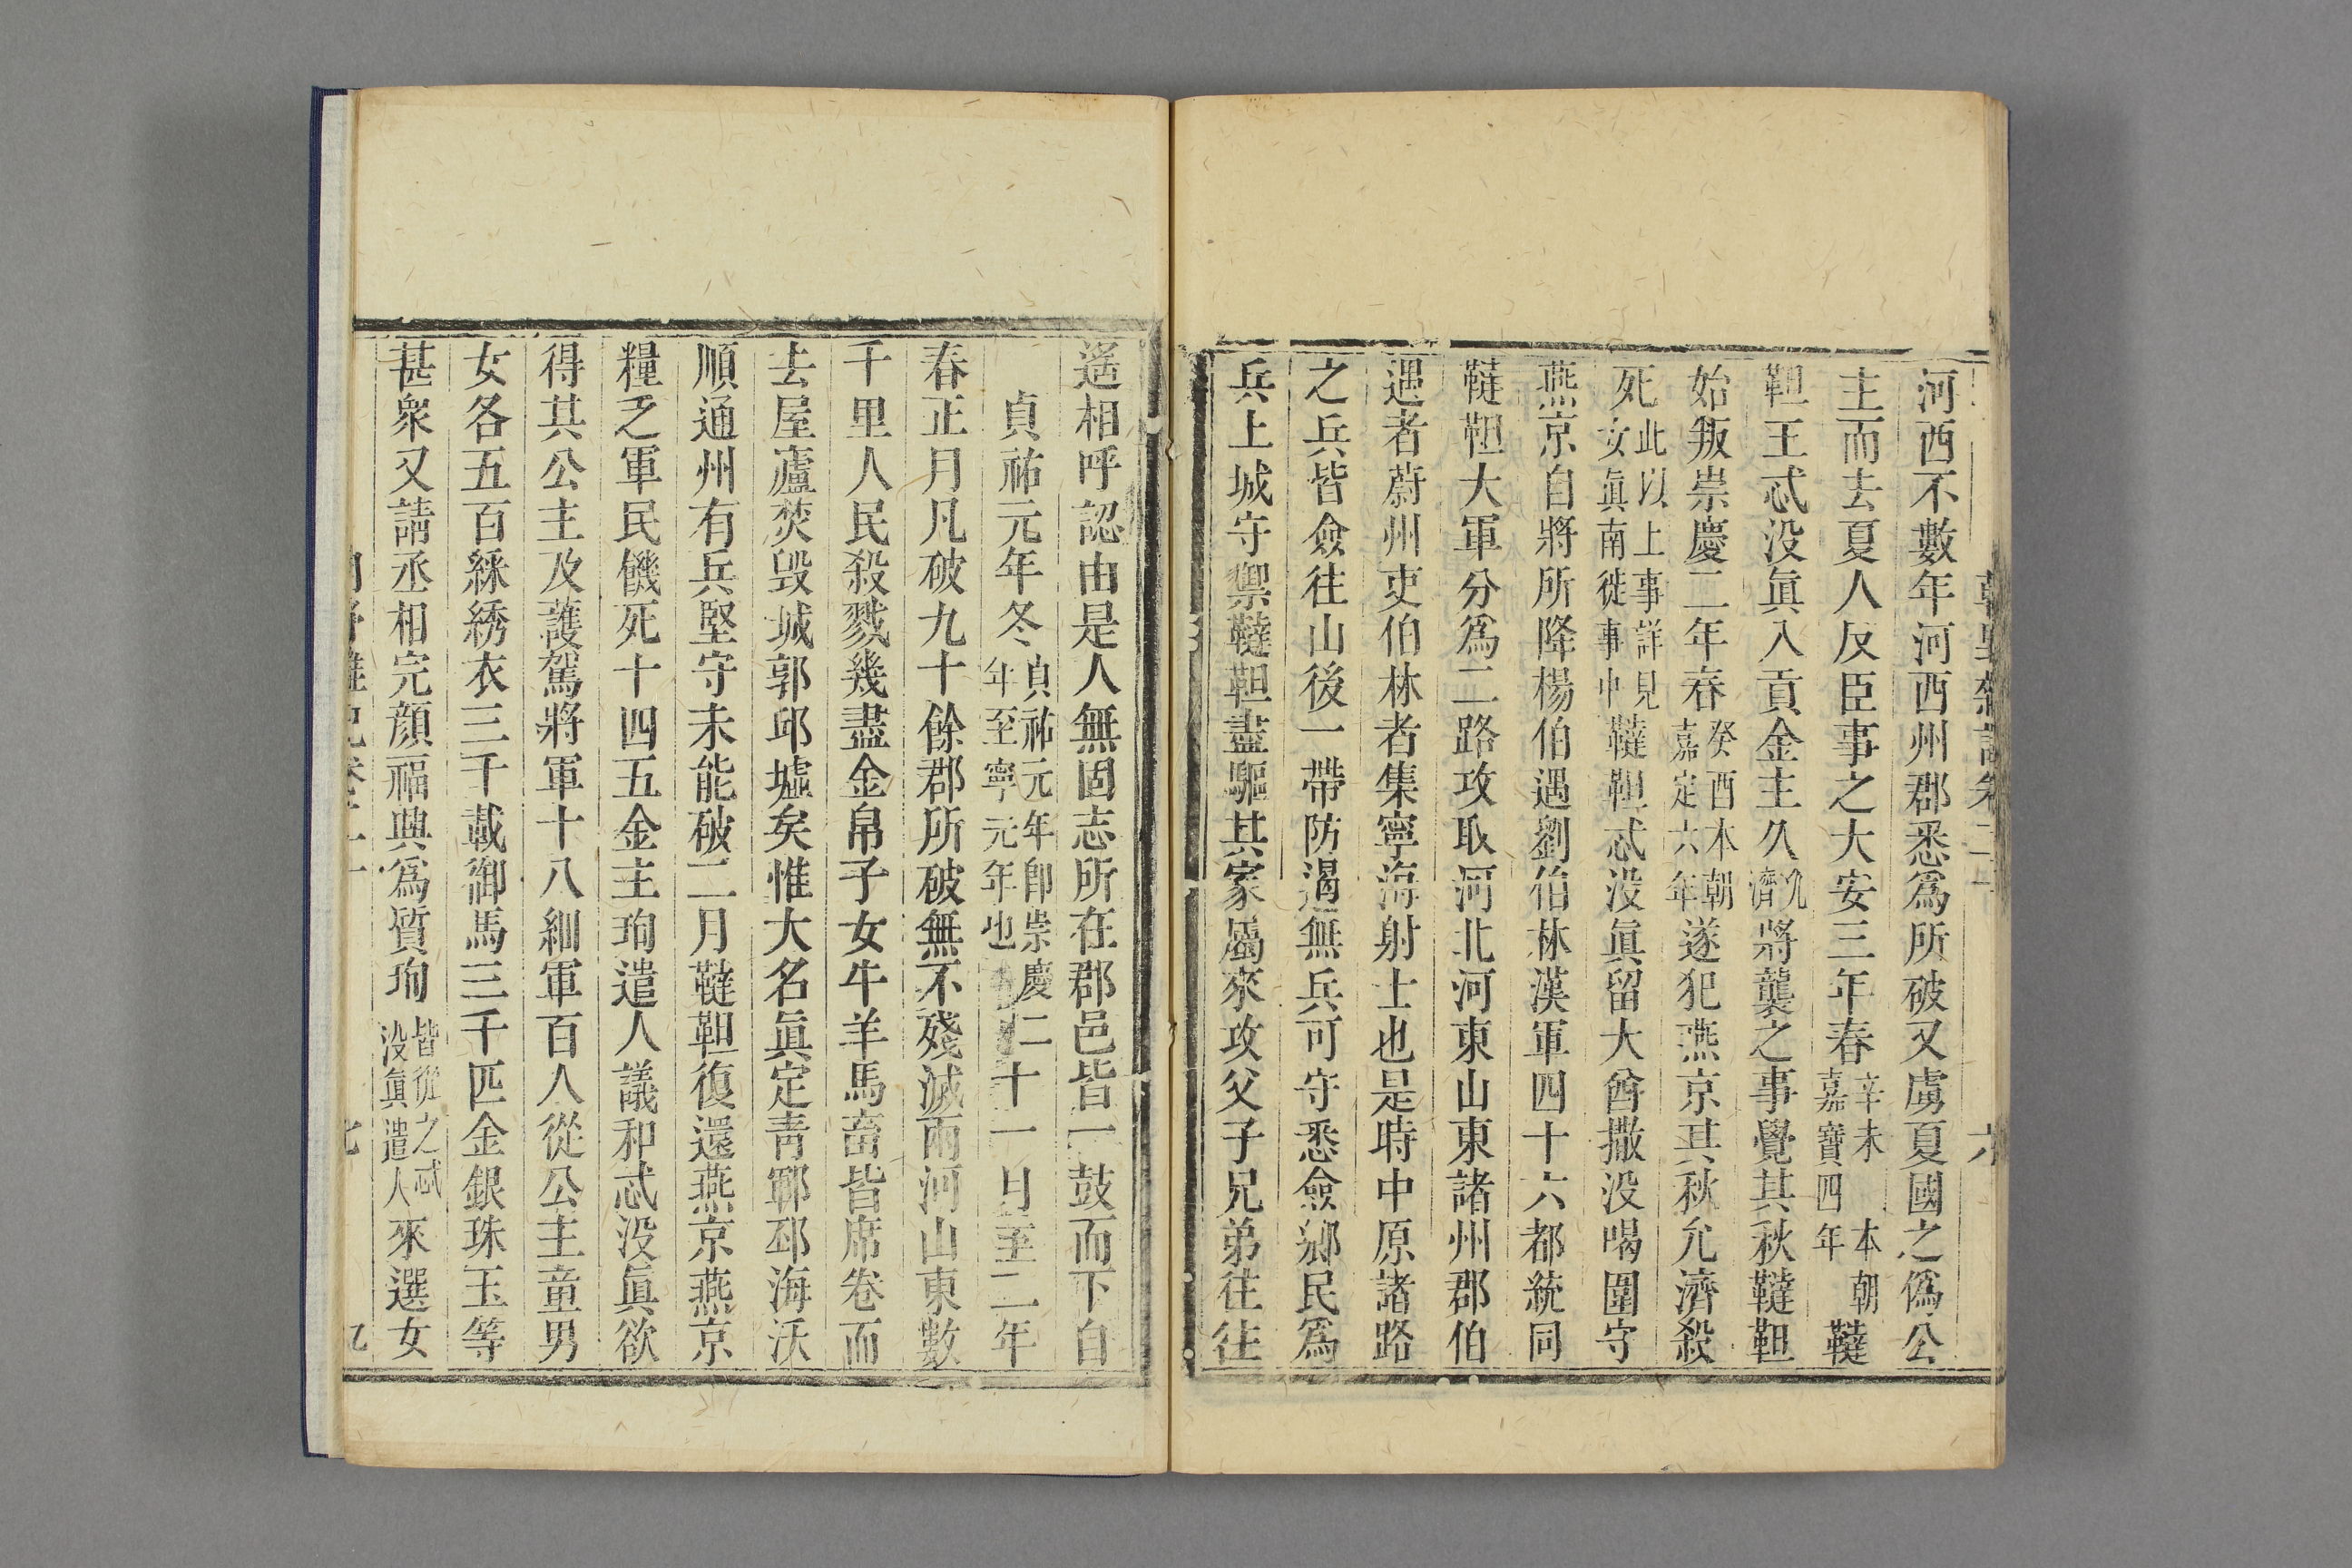 河西不數年河西州郡悉爲所破又虜夏國之僞公
主而去夏人反臣事之大安三年春辛未本朝嘉寶四年韃
靼王忒没眞入貢金主久允濟將襲之事覺其秋韃靼
始叛崇慶二年春癸酉本朝嘉定六年遂犯燕京其秋允濟殺
死此以上事詳見女眞南徙事中韃靼忒没眞留大酋撒没喝圍守
燕京自將所降楊伯遇劉伯林漢軍四十六都統同
韃靼大軍分爲二路攻取河北河東山東諸州郡伯
遇者蔚州吏伯林者集寧海射士也是時中原諸路
之兵皆僉往山後一帶防遏無兵可守悉僉鄉民爲
兵上城守禦韃靼盡驅其家屬來攻父子兄弟往往
遙相呼認由是人無固志所在郡邑皆一鼓而下白
貞祐元年冬貞祐元年卽崇慶二年至寧元年也十一月至二年
春正月凡破九十餘郡所破無不殘滅兩河山東數
千里人民殺戮幾盡金帛子女牛羊馬畜皆席卷而
去屋廬焚毀城郭邱墟矣惟大名眞定靑鄆邳海沃
順通州有兵堅守未能破二月韃靼復還燕京燕京
糧乏軍民餓死十四五金主珣遣人議和忒没眞欲
得其公主及護駕將軍十八細軍百人從公主童男
女各五百綵綉衣三千載御馬三千匹金銀珠玉等
甚衆又請丞相完顔福興爲質珣皆從之忒没眞遣人來選女